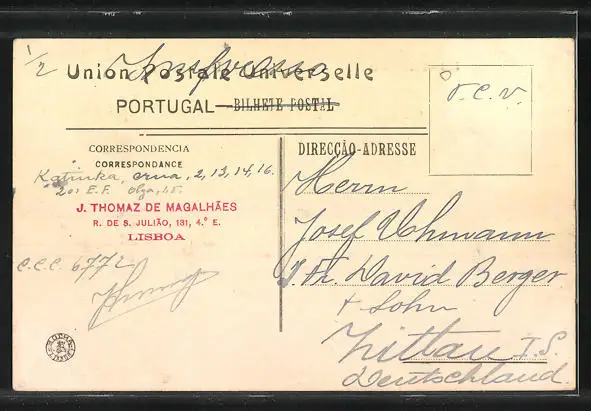 1/2
Impresso
Union Postale Universelle
PORTUGAL—BILHETE POSTAL
T.C.V.
CORRESPONDENCIA
CORRESPONDANCE
DIRECÇÃO-ADRESSE
Katinka, erna, 2, 13, 14, 16.
201 E.F. Olga, 45.
J. THOMAZ DE MAGALHÃES
R. DE S. JULIÃO, 131, 4.º E.
LISBOA
C.C.C. 6772
Herrn
Josef Uhmann
J. Fr. David Berger
+ Sohn
Zittau I.S.
Deutschland.